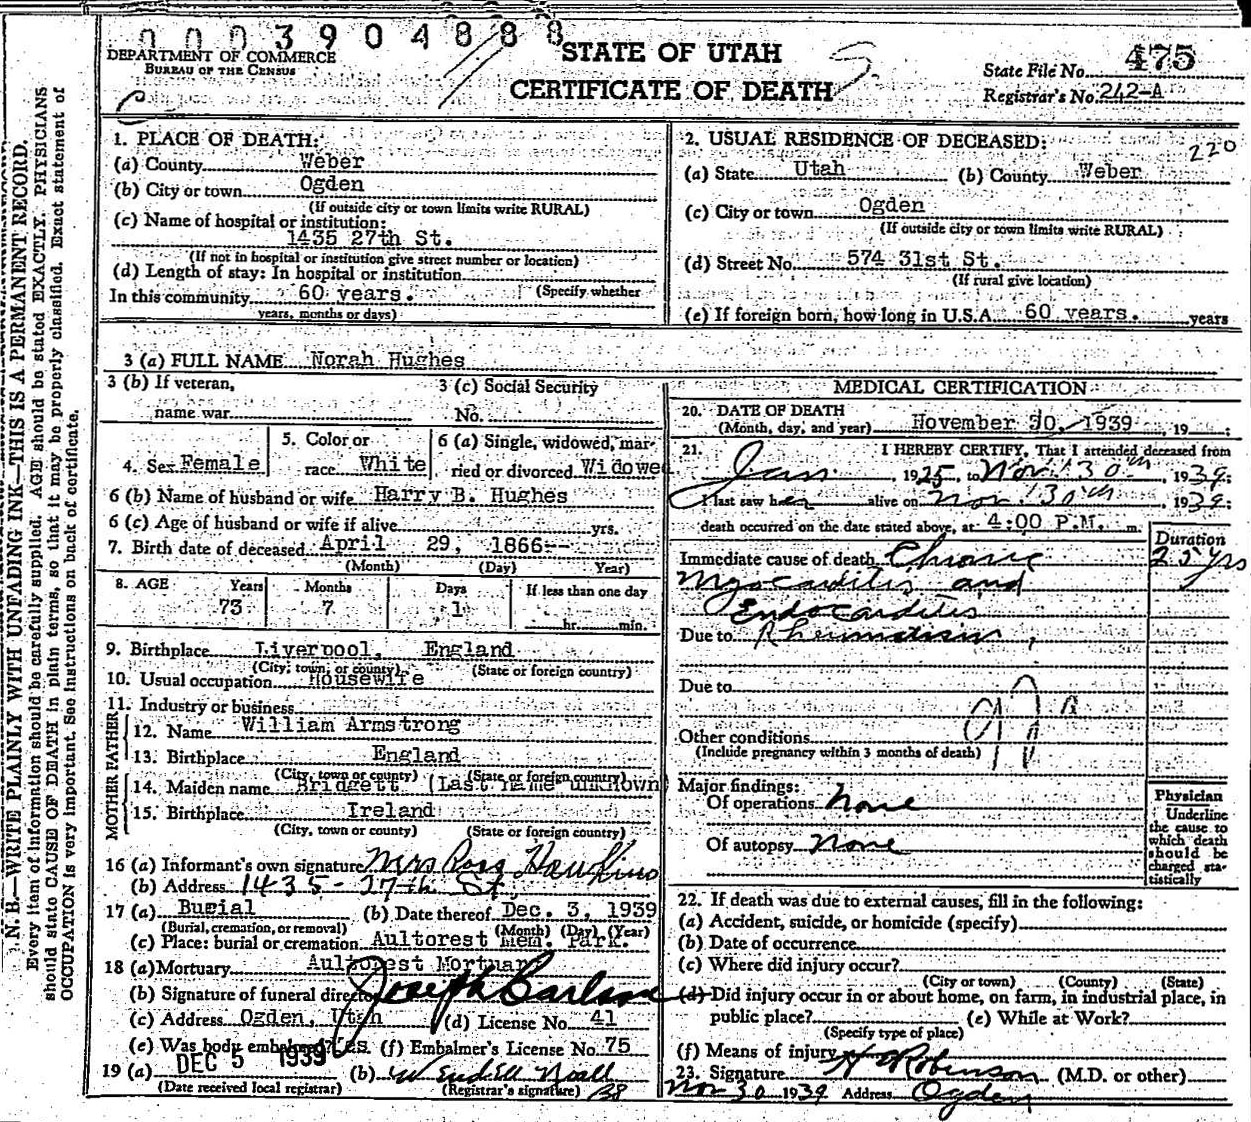 0003904888
DEPARTMENT OF COMMERCE
BUREAU OF THE CENSUS
STATE OF UTAH
CERTIFICATE OF DEATH
State File No. 475
Registrar's No. 242-A
N. B.—WRITE PLAINLY WITH UNFADING INK—THIS IS A PERMANENT RECORD.
Every item of information should be carefully supplied. AGE should be stated EXACTLY. PHYSICIANS
should state CAUSE OF DEATH in plain terms, so that it may be properly classified. Exact statement of
OCCUPATION is very important. See instructions on back of certificate.
1. PLACE OF DEATH:
(a) County Weber
(b) City or town Ogden
(If outside city or town limits write RURAL)
(c) Name of hospital or institution:
1435 27th St.
(If not in hospital or institution give street number or location)
(d) Length of stay: In hospital or institution
In this community 60 years. (Specify whether
years, months or days)
2. USUAL RESIDENCE OF DECEASED: 220
(a) State Utah (b) County Weber
(c) City or town Ogden
(If outside city or town limits write RURAL)
(d) Street No. 574 31st St.
(If rural give location)
(e) If foreign born, how long in U.S.A. 60 years. years
3 (a) FULL NAME Norah Hughes
3 (b) If veteran, 3 (c) Social Security
name war No.
4. Sex Female
5. Color or
race White
6 (a) Single, widowed, mar-
ried or divorced Widowed
6 (b) Name of husband or wife Harry B. Hughes
6 (c) Age of husband or wife if alive yrs.
7. Birth date of deceased April 29, 1866--
(Month) (Day) Year)
8. AGE Years Months Days If less than one day
73 7 1 hr. min.
9. Birthplace Liverpool, England
(City, town, or county) (State or foreign country)
10. Usual occupation Housewife
11. Industry or business
FATHER
12. Name William Armstrong
13. Birthplace England
(City, town or county) (State or foreign country)
MOTHER
14. Maiden name Bridgett (Last name unknown)
15. Birthplace Ireland
(City, town or county) (State or foreign country)
16 (a) Informant's own signature Mrs Ross Hawkins
(b) Address 1435-27th St.
17 (a) Burial (b) Date thereof Dec. 3, 1939
(Burial, cremation, or removal) (Month) (Day) (Year)
(c) Place: burial or cremation Aultorest Mem. Park.
18 (a) Mortuary Aultorest Mortuary
(b) Signature of funeral director Joseph Carlson
(c) Address Ogden, Utah (d) License No. 41
(e) Was body embalmed? Yes (f) Embalmer's License No. 75
19 (a) DEC 5 1939 (b) Wendell Noall
(Date received local registrar) (Registrar's signature)
MEDICAL CERTIFICATION
20. DATE OF DEATH
(Month, day, and year) November 30, 1939, 19 ;
21. I HEREBY CERTIFY, That I attended deceased from
Jan, 1925, to Nov. 30th, 1939;
I last saw her alive on Nov. 30th, 1939;
death occurred on the date stated above, at 4:00 P.M. m.
Duration
Immediate cause of death Chronic 25 yrs
Myocarditis and
Endocarditis
Due to Rheumatism,
Due to
Other conditions
(Include pregnancy within 3 months of death)
Major findings:
Of operations None
Of autopsy None
Physician
Underline
the cause to
which death
should be
charged sta-
tistically
22. If death was due to external causes, fill in the following:
(a) Accident, suicide, or homicide (specify)
(b) Date of occurrence
(c) Where did injury occur?
(City or town) (County) (State)
(d) Did injury occur in or about home, on farm, in industrial place, in
public place? (e) While at Work?
(Specify type of place)
(f) Means of injury
23. Signature Robinson (M.D. or other)
Nov 30 1939 Address Ogden